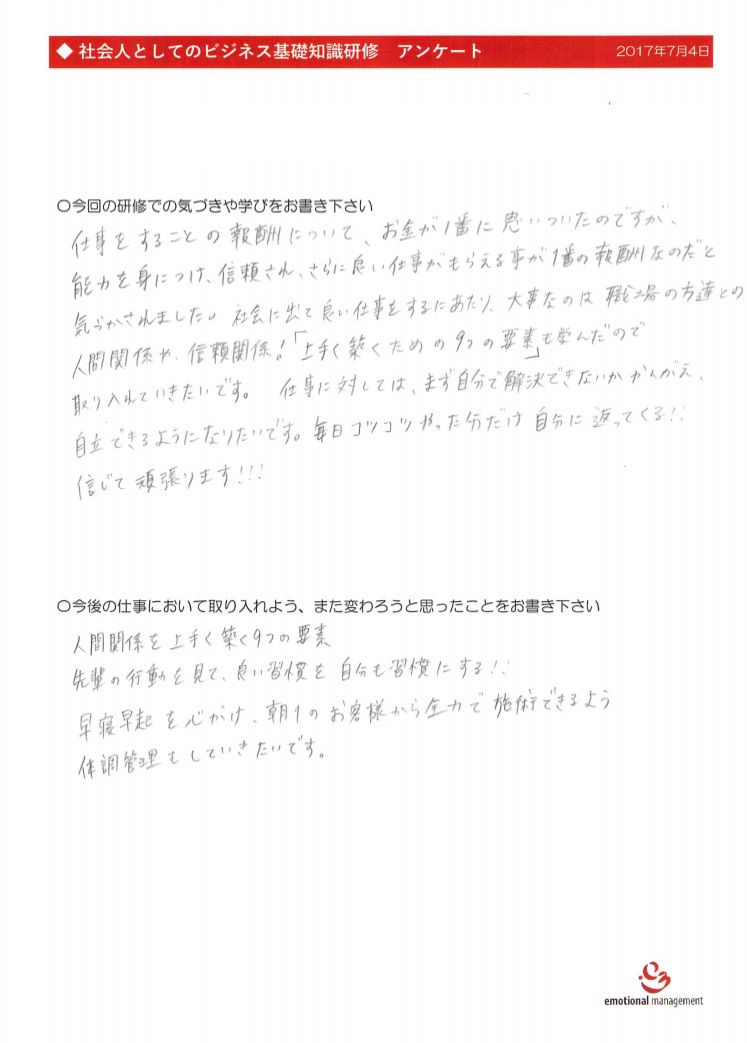 ◆ 社会人としてのビジネス基礎知識研修 アンケート 2017年7月4日
○今回の研修での気づきや学びをお書き下さい
仕事をすることの報酬について、お金が1番に思いついたのですが、
能力を身につけ、信頼され、さらに良い仕事がもらえる事が1番の報酬なのだと
気づかされました。社会に出て良い仕事をするにあたり、大事なのは職場の方達との
人間関係や、信頼関係!「上手く築くための9つの要素」も学んだので
取り入れていきたいです。 仕事に対しては、まず自分で解決できないかかんがえ、
自立できるようになりたいです。毎日コツコツやった分だけ自分に返ってくる!!
信じて頑張ります!!!
○今後の仕事において取り入れよう、また変わろうと思ったことをお書き下さい
人間関係を上手く築く9つの要素
先輩の行動を見て、良い習慣を自分も習慣にする!!
早寝早起を心がけ、朝1のお客様から全力で施術できるよう
体調管理もしていきたいです。
emotional management